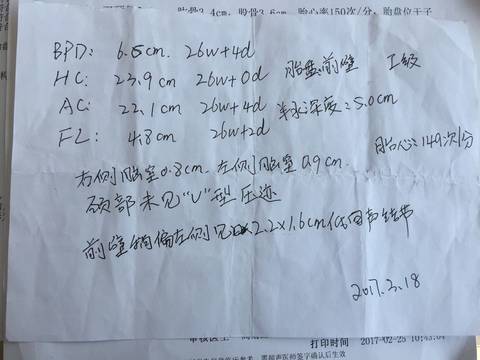 肱骨3.4cm，股骨3.6cm，胎心率150次/分，胎盘位于子
BPD: 6.6cm 26w+4d
HC: 23.9cm 26w+0d 胎盘前壁 I级
AC: 22.1cm 26w+4d 羊水深度:5.0cm
FL: 4.8cm 26w+2d 胎心:149次/分
右侧脑室0.8cm. 左侧脑室0.9cm.
颈部未见“U”型压迹
前壁稍偏左侧见 2.2×1.6cm低回声结节
2017.3.18
打印时间 2017-02-25 10:43:04
医师签字确认后生效